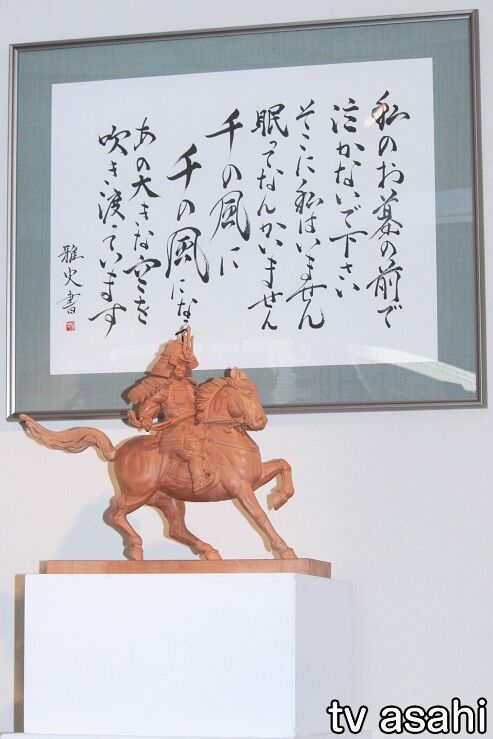 私のお墓の前で
泣かないで下さい
そこに私はいません
眠ってなんかいません
千の風に
千の風になって
あの大きな空を
吹き渡っています
雅史書
tv asahi